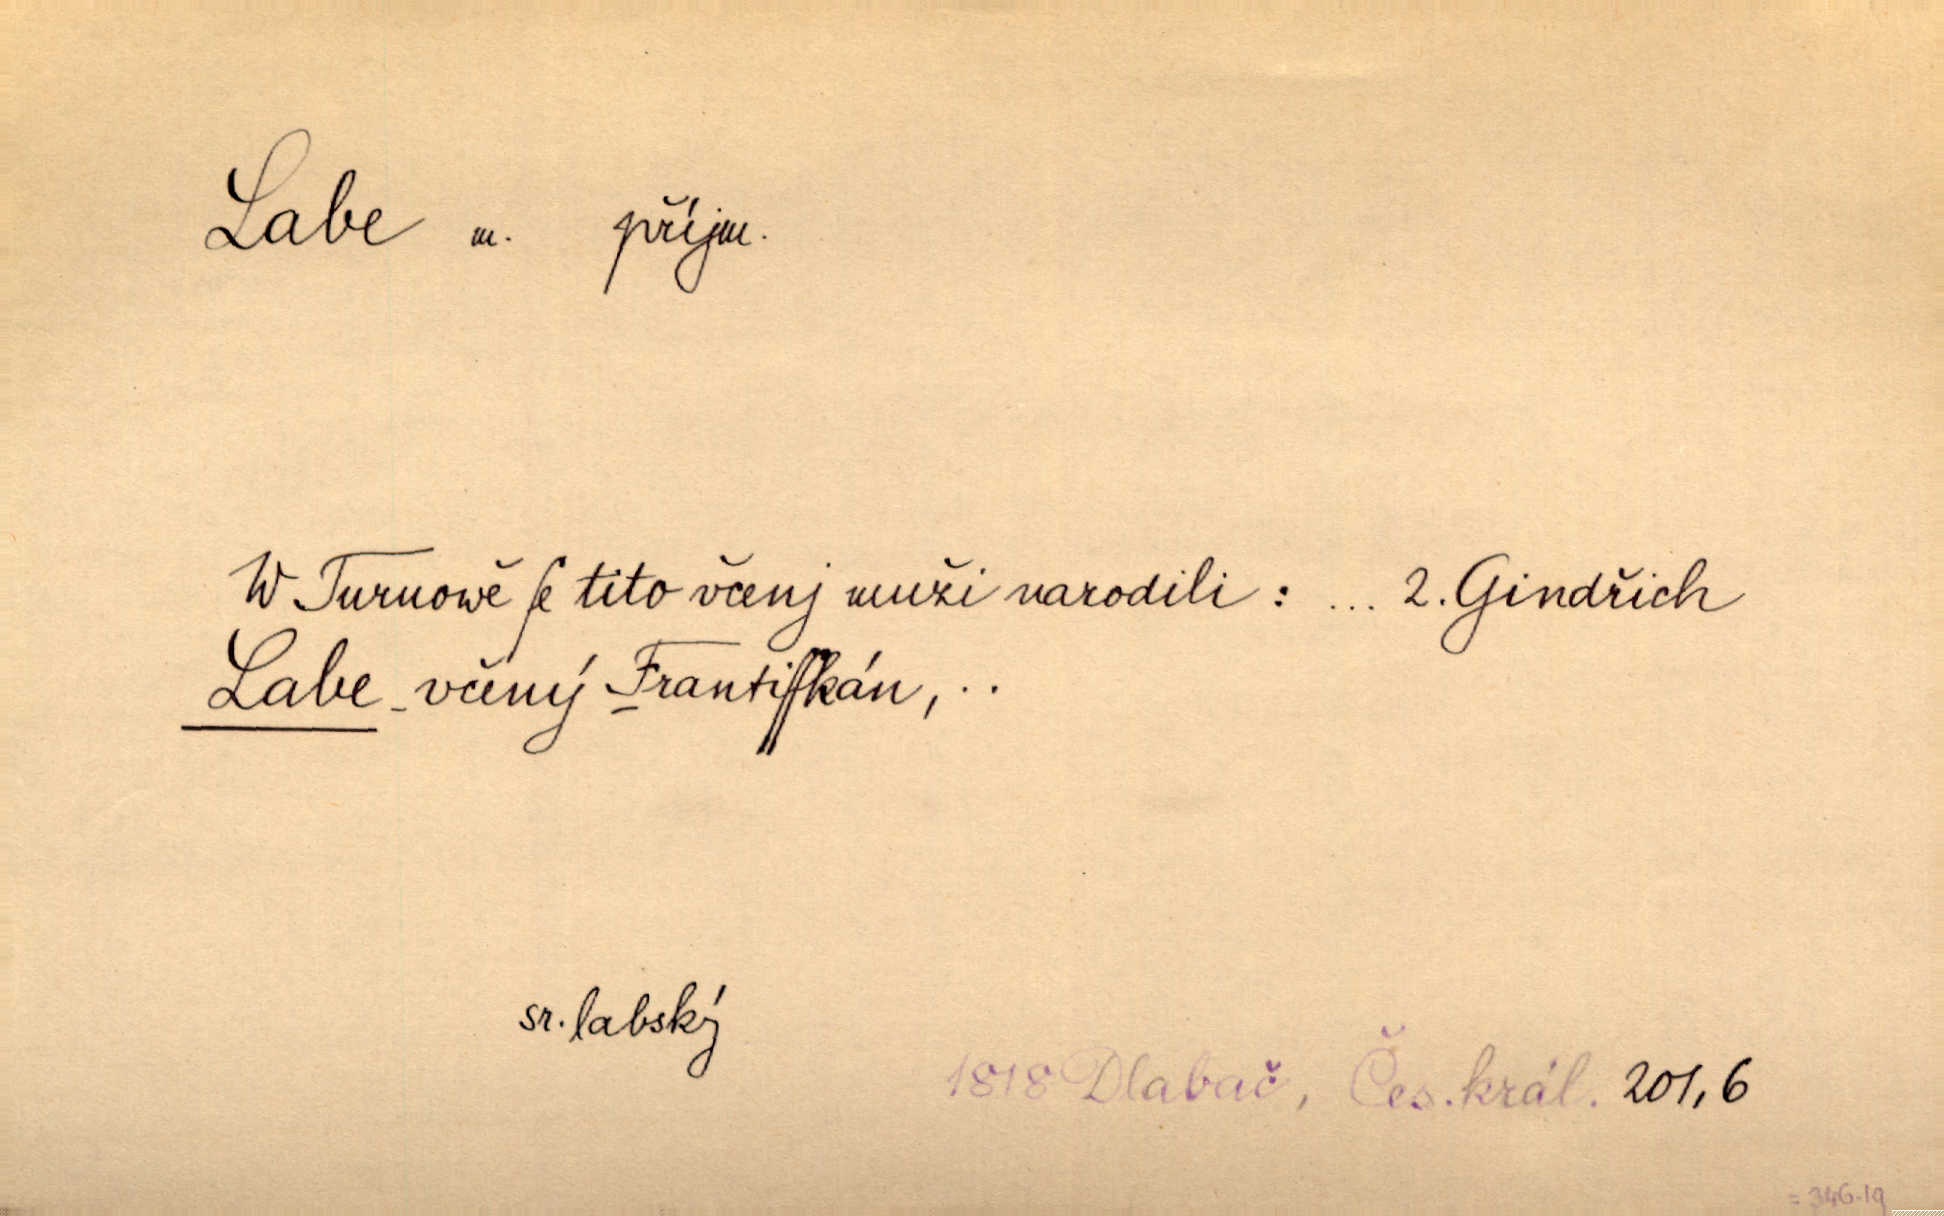 Labe m. příjm.
W Turnowě ſe tito včenj muži narodili : ... 2. Gindřich
Labe - včený Frantiſſkán, ..
sr. labský
1818 Dlabač, Čes. král. 201, 6
= 346-19